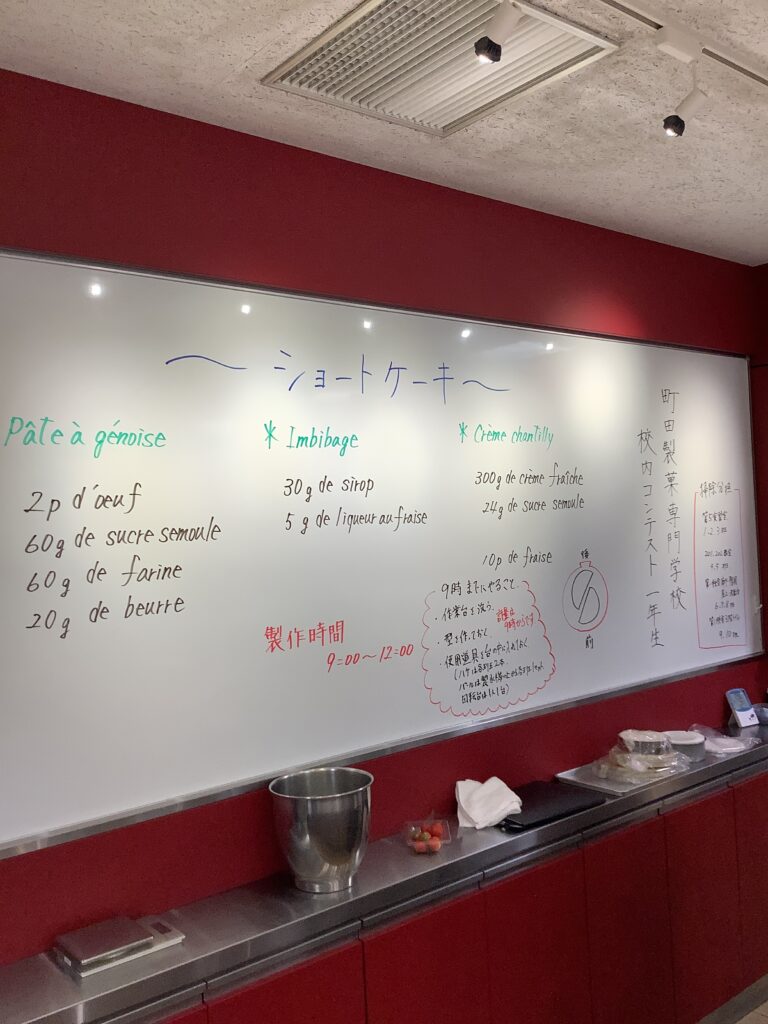 ～ショートケーキ～
Pâte à génoise
2p d'oeuf
60g de sucre semoule
60g de farine
20g de beurre
* Imbibage
30g de sirop
5g de liqueur au fraise
* Crème chantilly
300g de crème fraîche
24g de sucre semoule
10p de fraise
製作時間
9:00～12:00
9時までにやること
・作業台を洗う。
・型を作っておく。
計量は
9時からです
・使用道具を台の中に入れておく
前
町田製菓専門学校
校内コンテスト 一年生
掃除分担